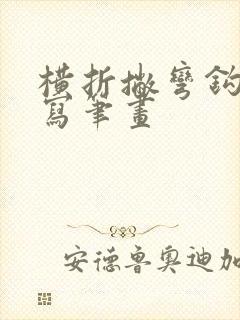 橫折撇彎鈎
寫筆畫
安德魯奧迪加